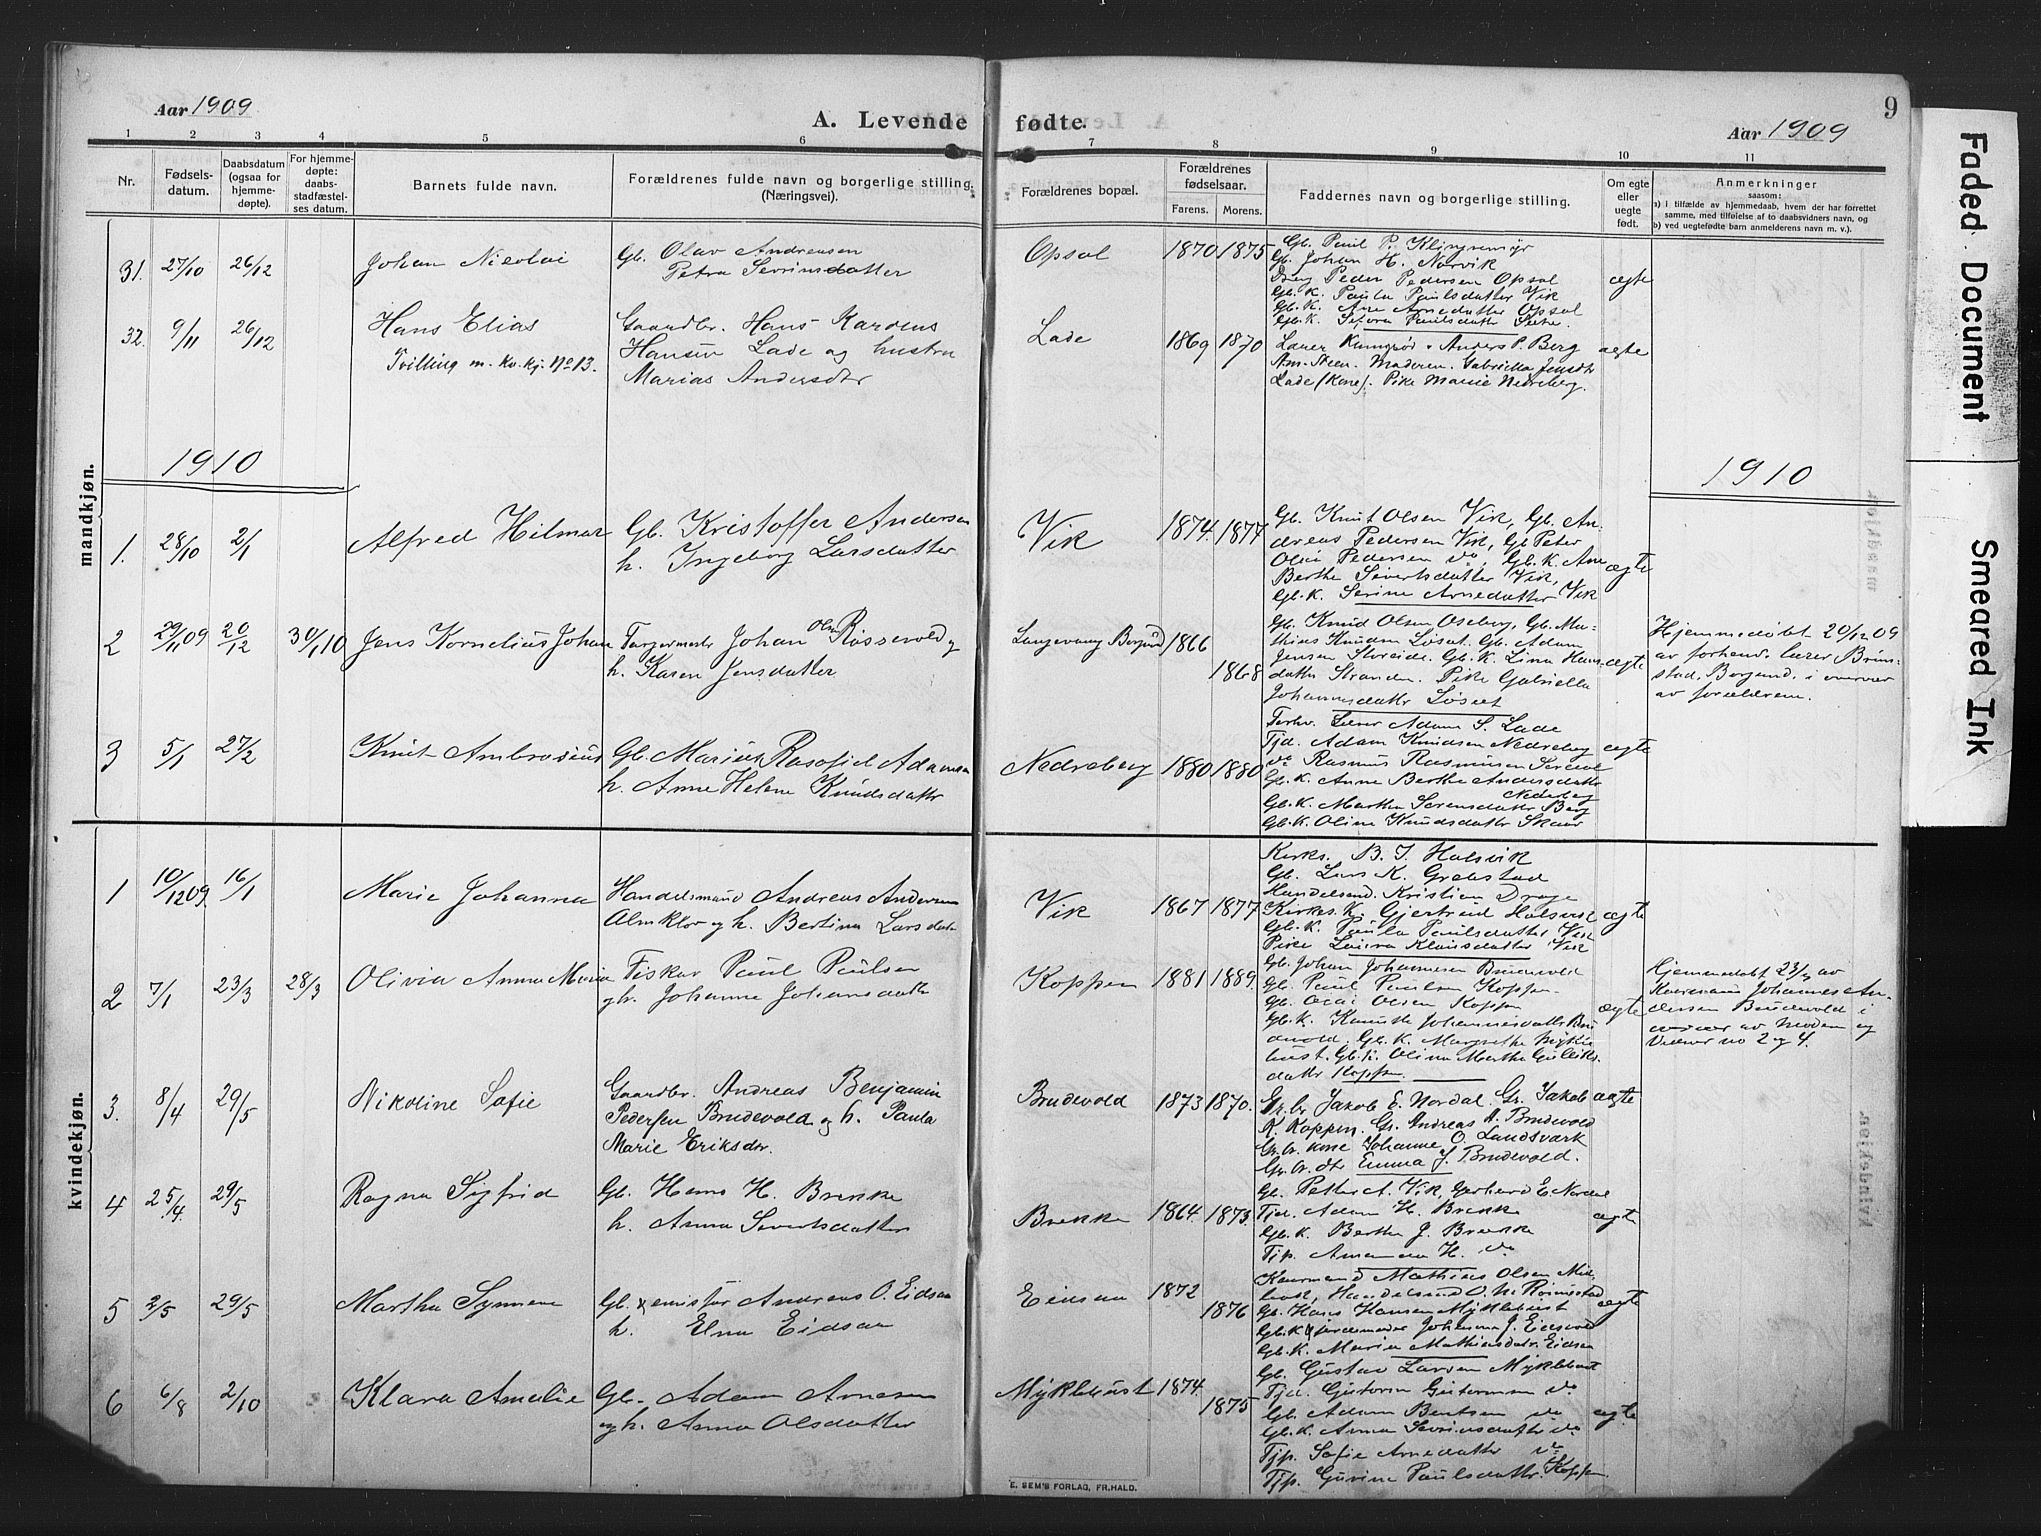 Aar 1909
A. Levende fødte.
9
Aar 1909
1 2 3 4 5 6 7 8 9 10 11
Nr.
Fødsels-
datum.
Daabsdatum
(ogsaa for
hjemme-
døpte).
For hjemme-
døpte:
daabs-
stadfæstel-
ses datum.
Barnets fulde navn.
Forældrenes fulde navn og borgerlige stilling.
(Næringsvei).
Forældrenes bopæl.
Forældrenes
fødselsaar.
Farens. Morens.
Faddernes navn og borgerlige stilling.
Om egte
eller
uegte
født.
Anmerkninger
saasom:
a) i tilfælde av hjemmedaab, hvem der har forrettet
samme, med tilføielse af to daabsvidners navn, og
b) ved uegtefødte barn anmelderens navn m. v.).
mandkjøn.
31. 27/10 26/12
Johan Nicolai
Gb. Olav Andreasen
Petra Severinsdatter
Opsal
1870 1875
Gb. Paul P. Klingremyr
Gb. Johan H. Norvik
Peder Pedersen Opsal
Gb. K. Paula Paulsdatter Vik
Gb. K. Ane Arnedatter Opsal
Gb. K. Paulsdatter
ægte
32. 9/11 26/12
Hans Elias
Tvilling m. kv. kj. No 13.
Gaardbr. Hans Karolus
Hansen Lade og hustru
Marias Andersdtr
Lade
1869 1870
Lærer Anders P. Berg
Gabriella Jensdtr
Lade (Kone). Pike Marie Nedreberg.
ægte
1910
1910
1. 28/10 2/1
Alfred Hilmar
Gb. Kristoffer Andersen
h. Ingeborg Larsdatter
Vik
1874. 1877
Gb. Knut Olsen Vik, Gb. An-
dreas Pedersen Vik, Gb Peter
Pedersen do, Gb. K. Ane
Berthe Sivertsdatter Vik,
Gb. K. Serine Arnedatter Vik
ægte
2 29/11 09 20/12 30/1 10
Jens Kornelius Johan
Johan Olsen Røssevold og
h. Karen Jensdatter
Langevaag Borgund
1866
1868
Gb. Knud Olsen Oseberg, Gb. Ma-
thias Knudsen Løset. Gb. Adam
Jensen Storeide. Gb. K. Lina Hans-
datter Stranden. Pike Gabriella
Johannesdatter Løset
ægte
Hjemmedøbt 20/12 09
av forhend. lærer Brun-
stad, Borgund, i overvær
av forældrene.
3 5/1 27/2
Knut Ambrosius
Gb. Marius Adamsen
h. Anne Helene Knudsdatter
Nedreberg
1880 1880
Lærer Adam S. Lade
Tjd. Adam Knudsen Nedreberg
do Rasmus Rasmussen
Gb. K. Anne Berthe Andersdatter
Nedreberg
Gb. K. Marthe Sørensdatter Berg
Gb. K. Oline Knudsdatter Skaar
ægte
kvindekjøn.
1 10/12 09. 16/1
Marie Johanna
Handelsmand Andreas Andersen
Almklov og h. Bertine Larsdatter
Vik
1867 1877
Kirks. B. J. Halsvik
Gb. Lars K. Grebstad
Handelsmd. Kristian Drage
Kirkes. K. Gjertrud Halsvik
Gb. K. Paula Paulsdatter Vik
Pike Laura Klausdatter Vik
ægte
2 7/1 23/3 28/3
Olivia Anna Maria
Fisker Paul Paulsen
gh. Johanne Johansdatter
Koppen
1881 1889.
Gb. Johan Johannesen Brudevold
Gb. Paul Paulsen Koppen
Gb. Olsen Koppen
Gb. K. Johannesdatter Bru-
devold. Gb. K. Margrethe Mykle-
bust. Gb. K. Olina Marthe
datter Koppen.
ægte
Hjemmedøbt 23/3 av
Johannes An-
dersen Brudevold i
overvær av moderen og
Vidner no 2 og 4.
3. 8/4 29/5
Nikoline Sofie
Gaardbr. Andreas Benjamin
Pedersen Brudevold og h. Paula
Marie Eriksdtr.
Brudevold
1873 1870.
Gr. br Jakob E. Nordal. Gr. Jakob
K. Koppen. Gr. Andreas A. Brudevold
Gr. br. kone Johanne O. Landsværk
Gr. br. dtr Emma J. Brudevold.
ægte
4 25/4. 29/5
Ragna Sigfrid
Gb. Hans H. Brekke
h. Anna Sivertsdatter
Brekke
1864. 1873.
Gb. Petter A. Vik, Gerhard E. Nordal
Tjd. Adam H. Brekke
Gb. K. Berthe J. Brekke
Tjp. H. do
ægte
5 2/5 29/5
Martha Synnøve
Gb. x Andreas O. Eidsaa
h. Elna Eidsaa
Eidsaa
1872
1876
Kaarmand Mathias Olsen Mik-
lebost, Handelsmd O. N. Rønnestad
Gb. Hans Hansen Myklebust
Gb. K. jordemoder Johanna J. Eidsvold
Gb. K. Maria Mathiasdatr. Eidsaa
ægte
6 6/8 2/10
Klara Amalie
Gb. Adam Arnesen
og h. Anna Olsdatter
Myklebust
1874.
1875
Gb. Gustav Larsen Myklebust
Tjd. Guttorm Guttormsen do
Gb. Adam Bentsen do
Gb. K. Anna Severinsdatter do
Tjp. Sofie Arnedatter do
Tjp. Gurine Paulsdatter. Koppen.
ægte.
E. SEM'S FORLAG, FR.HALD.
Faded Document
Smeared Ink